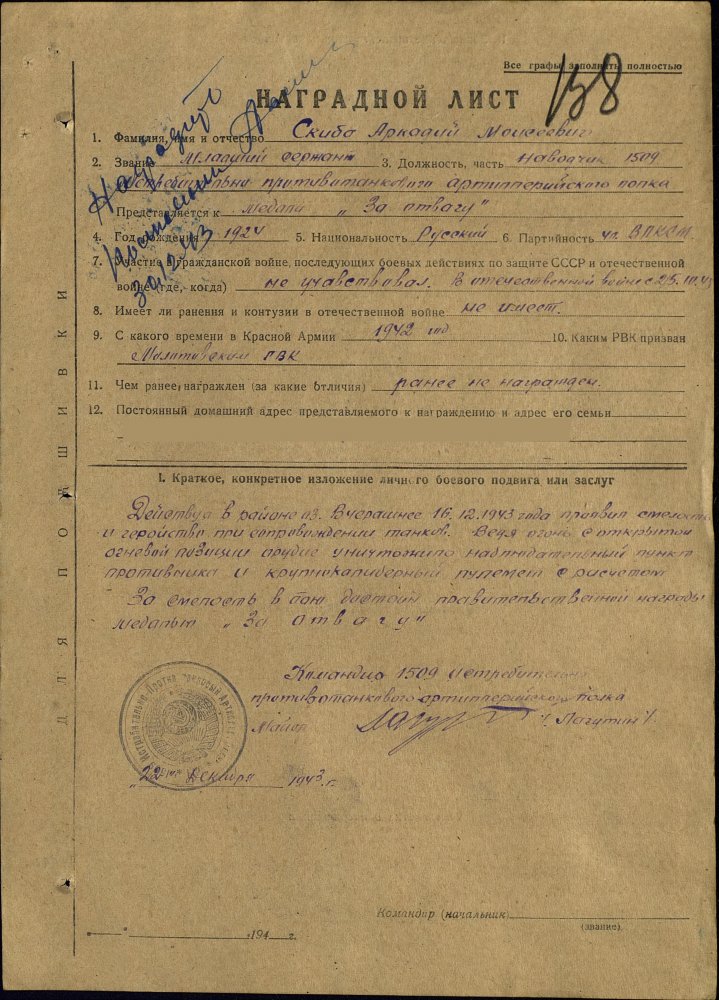 Все графы заполнять полностью
138
НАГРАДНОЙ ЛИСТ
1. Фамилия, имя и отчество Скиба Аркадий Моисеевич
2. Звание Младший сержант 3. Должность, часть наводчик 1509
истребительно противотанкового артиллерийского полка
Представляется к медали „За отвагу"
4. Год рождения 1924 5. Национальность Русский 6. Партийность чл. ВЛКСМ
7. Участие в гражданской войне, последующих боевых действиях по защите СССР и отечественной
войне (где, когда) не учавствовал. В отечественной войне с
8. Имеет ли ранения и контузии в отечественной войне не имеет.
9. С какого времени в Красной Армии 1942 год 10. Каким РВК призван
РВК
11. Чем ранее награжден (за какие отличия) ранее не награжден.
12. Постоянный домашний адрес представляемого к награждению и адрес его семьи
I. Краткое, конкретное изложение личного боевого подвига или заслуг
Действуя в районе Вчерашнее 16.12.1943 года проявил смелость
и геройство при сопровождении танков. Ведя огонь с открытой
огневой позиции орудие уничтожило наблюдательный пункт
противника и крупнокалиберный пулемет с расчетом
За смелость в бою достоин правительственной награды
медалью „За Отвагу"
Командир 1509 истребительно
противотанкового артиллерийского полка
Майор /Лагутин/.
„22" декабря 1943 г.
Командир (начальник)
(звание)
194 г.
ДЛЯ ПОДШИВКИ
Наградить
30.12.43